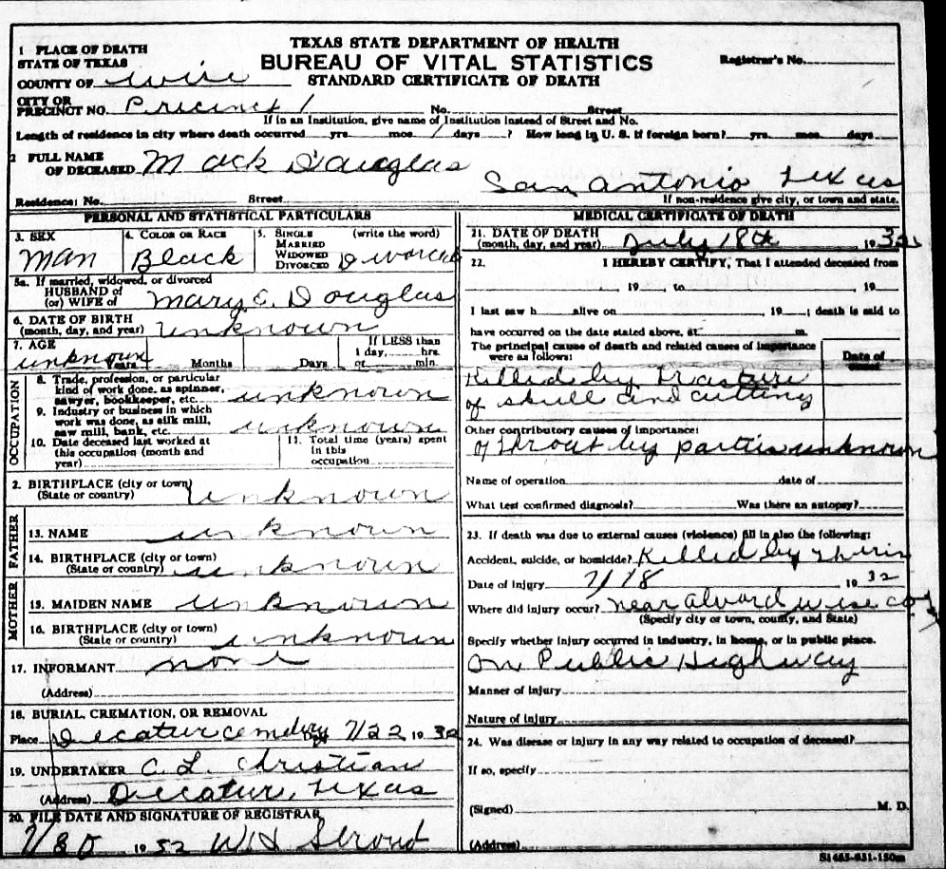 TEXAS STATE DEPARTMENT OF HEALTH
BUREAU OF VITAL STATISTICS
STANDARD CERTIFICATE OF DEATH
Registrar's No.
1 PLACE OF DEATH
STATE OF TEXAS
COUNTY OF Wise
CITY OR
PRECINCT NO. Precinct 1 No. Street
If in an Institution, give name of Institution instead of Street and No.
Length of residence in city where death occurred yrs. mos. 1 days ? How long in U. S. if foreign born? yrs. mos. days
2 FULL NAME
OF DECEASED Mack Douglas
San Antonio Texas
Residence: No. Street If non-residence give city, or town and state.
PERSONAL AND STATISTICAL PARTICULARS
3. SEX
Man
4. COLOR OR RACE
Black
5. SINGLE (write the word)
MARRIED
WIDOWED
DIVORCED Divorced
5a. If married, widowed, or divorced
HUSBAND OF
(or) WIFE of Mary C. Douglas
6. DATE OF BIRTH
(month, day, and year) unknown
7. AGE
unknown Years Months Days
If LESS than
1 day, hrs.
or min.
OCCUPATION
8. Trade, profession, or particular
kind of work done, as spinner,
sawyer, bookkeeper, etc. unknown
9. Industry or business in which
work was done, as silk mill,
saw mill, bank, etc. unknown
10. Date deceased last worked at
this occupation (month and
year)
11. Total time (years) spent
in this
occupation
2. BIRTHPLACE (city or town)
(State or country) unknown
FATHER
13. NAME unknown
14. BIRTHPLACE (city or town)
(State or country) unknown
MOTHER
15. MAIDEN NAME unknown
16. BIRTHPLACE (city or town)
(State or country) unknown
17. INFORMANT none
(Address)
18. BURIAL, CREMATION, OR REMOVAL
Place Decatur 7/22 1932
19. UNDERTAKER C. L. Christian
(Address) Decatur, Texas
20. FILE DATE AND SIGNATURE OF REGISTRAR
19
MEDICAL CERTIFICATE OF DEATH
21. DATE OF DEATH
(month, day, and year) July 18th 1932
22. I HEREBY CERTIFY, That I attended deceased from
19 to 19
I last saw h alive on , 19 ; death is said to
have occurred on the date stated above, at m.
The principal cause of death and related causes of importance
were as follows:
Date of
Killed by Fracture
of skull and cutting
Other contributory causes of importance:
of throat by parties unknown
Name of operation date of
What test confirmed diagnosis? Was there an autopsy?
23. If death was due to external causes (violence) fill in also the following:
Accident, suicide, or homicide? Killed by
Date of injury 7/18 1932
Where did injury occur? near Alvord Wise Co
(Specify city or town, county, and State)
Specify whether injury occurred in industry, in home, or in public place.
On Public Highway
Manner of injury
Nature of injury
24. Was disease or injury in any way related to occupation of deceased?
If so, specify
(Signed) M. D.
(Address)